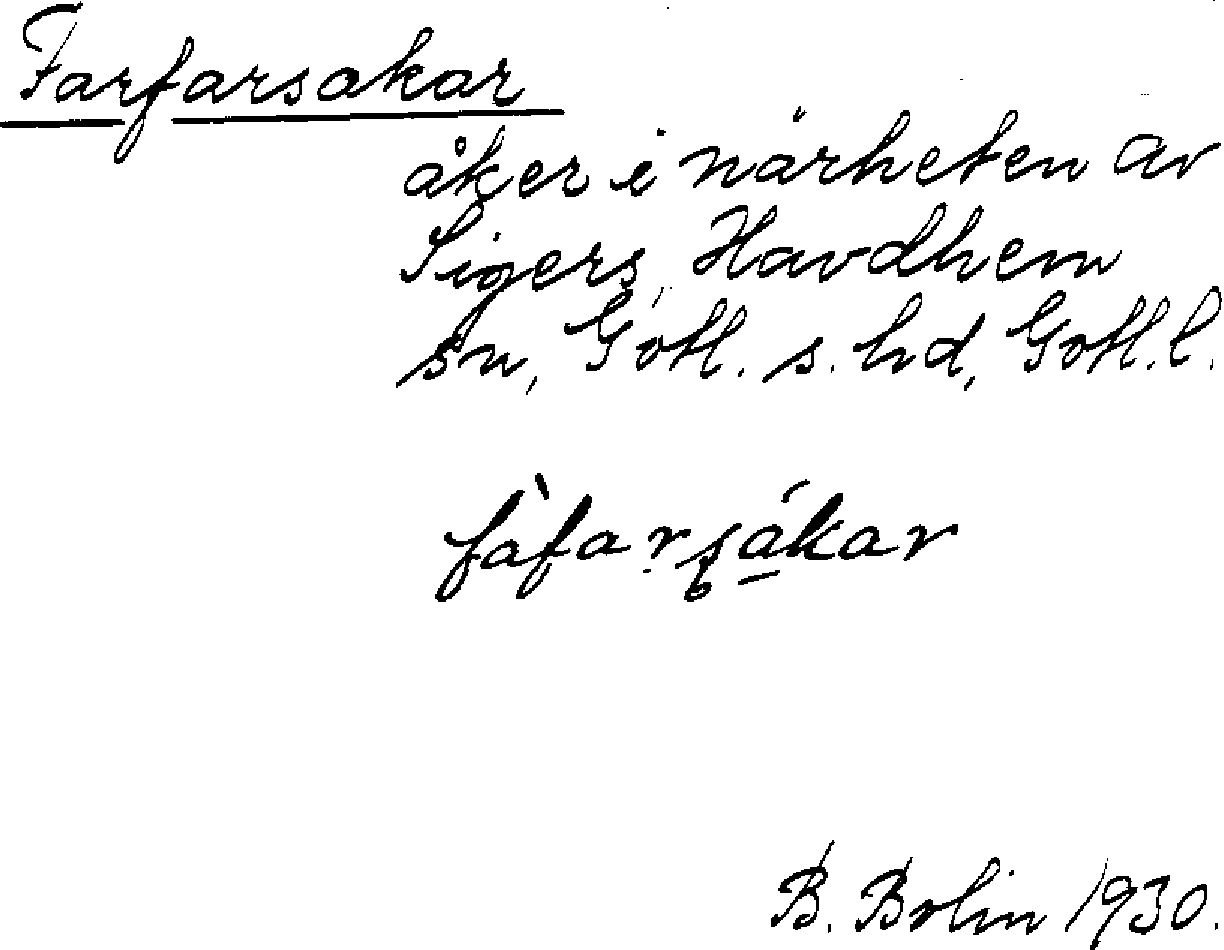 Farfarsakar
åker i närheten av
Sigers, Havdhem
sn, Gotl. s. hd, Gotl. l.
fàfarsákar
B. Bolin 1930.